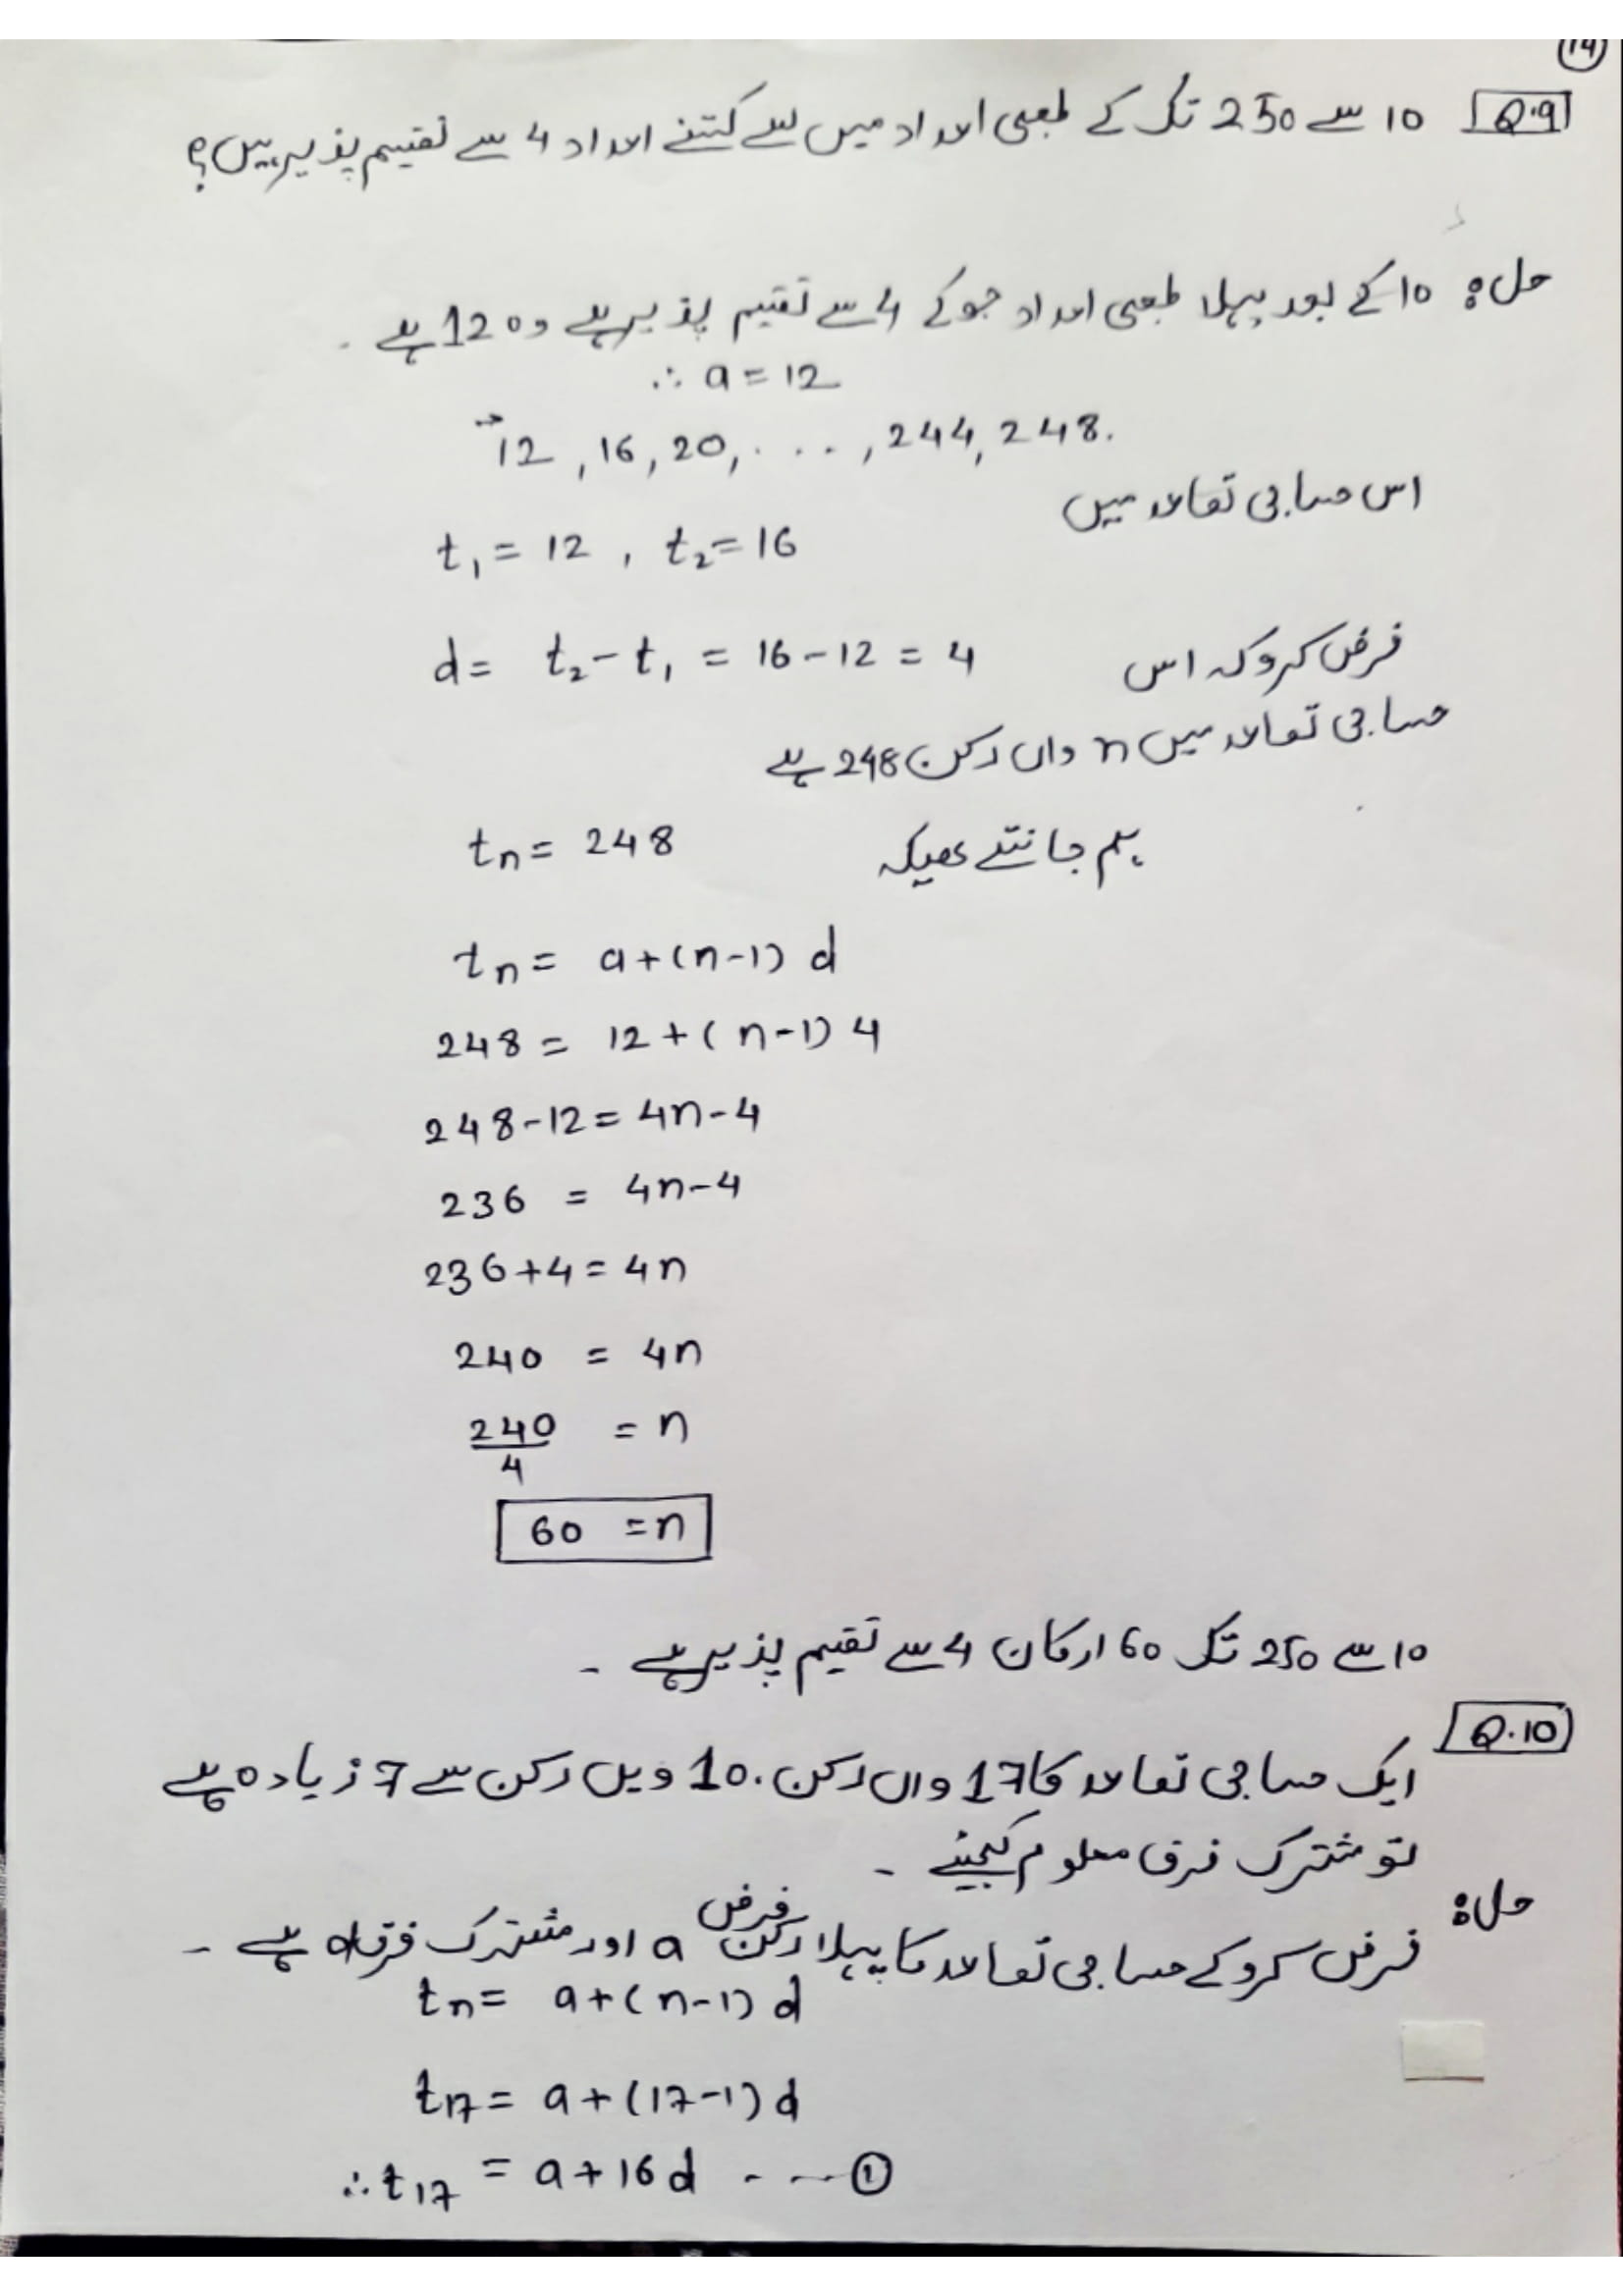 14
Q.9 10 سے 250 تک کے طبعی اعداد میں سے کتنے اعداد 4 سے تقسیم پذیر ہیں؟
حل: 10 کے بعد پہلا طبعی اعداد جو کے 4 سے تقسیم پذیر ہے وہ 12 ہے۔
∴ a = 12
12, 16, 20, ...., 244, 248.
اس حسابی تصاعد میں
t₁ = 12 , t₂ = 16
d = t₂ - t₁ = 16 - 12 = 4 فرض کرو کہ اس
حسابی تصاعد میں n واں رکن 248 ہے
tn = 248 ہم جانتے ھیکہ
tn = a+(n-1) d
248 = 12+(n-1) 4
248-12 = 4n-4
236 = 4n-4
236+4 = 4n
240 = 4n
240/4 = n
60 = n
10 سے 250 تک 60 ارکان 4 سے تقیم پذیر ہے۔
Q.10
ایک حسابی تصاعد کا 17 واں رکن 10. ویں رکن سے 7 زیادہ ہے
تو مشترک فرق معلوم کیجئے۔
حل:
فرض کرو کے حسابی تصاعد کا پہلا رکن فرض a اور مشترک فرق d ہے۔
tn = a+(n-1) d
t17 = a+(17-1) d
∴ t17 = a+16d ---- ①